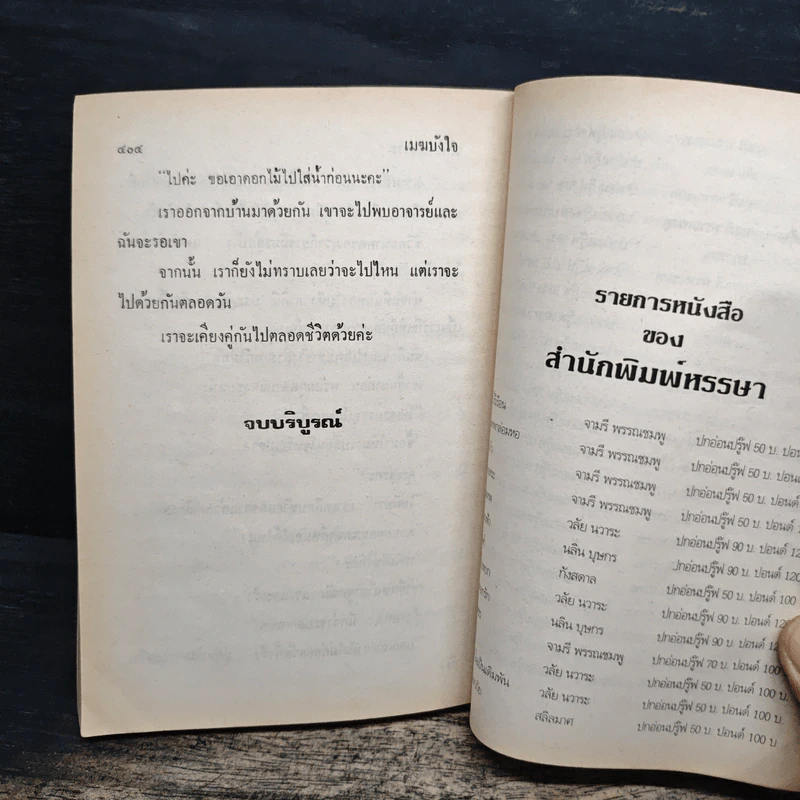 ๔๐๔ เมฆบังใจ
"ไปค่ะ ขอเอาดอกไม้ไปใส่น้ำก่อนนะคะ"
เราออกจากบ้านมาด้วยกัน เขาจะไปพบอาจารย์และ
ฉันจะรอเขา
จากนั้น เราก็ยังไม่ทราบเลยว่าจะไปไหน แต่เราจะ
ไปด้วยกันตลอดวัน
เราจะเคียงคู่กันไปตลอดชีวิตด้วยค่ะ
จบบริบูรณ์
รายการหนังสือ
ของ
สำนักพิมพ์หรรษา
จามรี พรรณชมพู ปกอ่อนปรู๊ฟ 50 บ. ปอนด์
จามรี พรรณชมพู ปกอ่อนปรู๊ฟ 50 บ. ปอนด์
จามรี พรรณชมพู ปกอ่อนปรู๊ฟ 50 บ. ปอนด์
จามรี พรรณชมพู ปกอ่อนปรู๊ฟ 50 บ. ปอนด์
วลัย นวาระ ปกอ่อนปรู๊ฟ 90 บ. ปอนด์
นลิน บุษกร ปกอ่อนปรู๊ฟ 90 บ. ปอนด์ 120
กังสดาล ปกอ่อนปรู๊ฟ 50 บ. ปอนด์ 100
วลัย นวาระ ปกอ่อนปรู๊ฟ 90 บ. ปอนด์
นลิน บุษกร ปกอ่อนปรู๊ฟ 90 บ. ปอนด์
จามรี พรรณชมพู ปกอ่อนปรู๊ฟ 70 บ. ปอนด์ 100 บ.
วลัย นวาระ ปกอ่อนปรู๊ฟ 50 บ. ปอนด์ 100 บ.
วลัย นวาระ ปกอ่อนปรู๊ฟ 50 บ. ปอนด์ 100 บ.
สลิลมาศ ปกอ่อนปรู๊ฟ 50 บ. ปอนด์ 100 บ